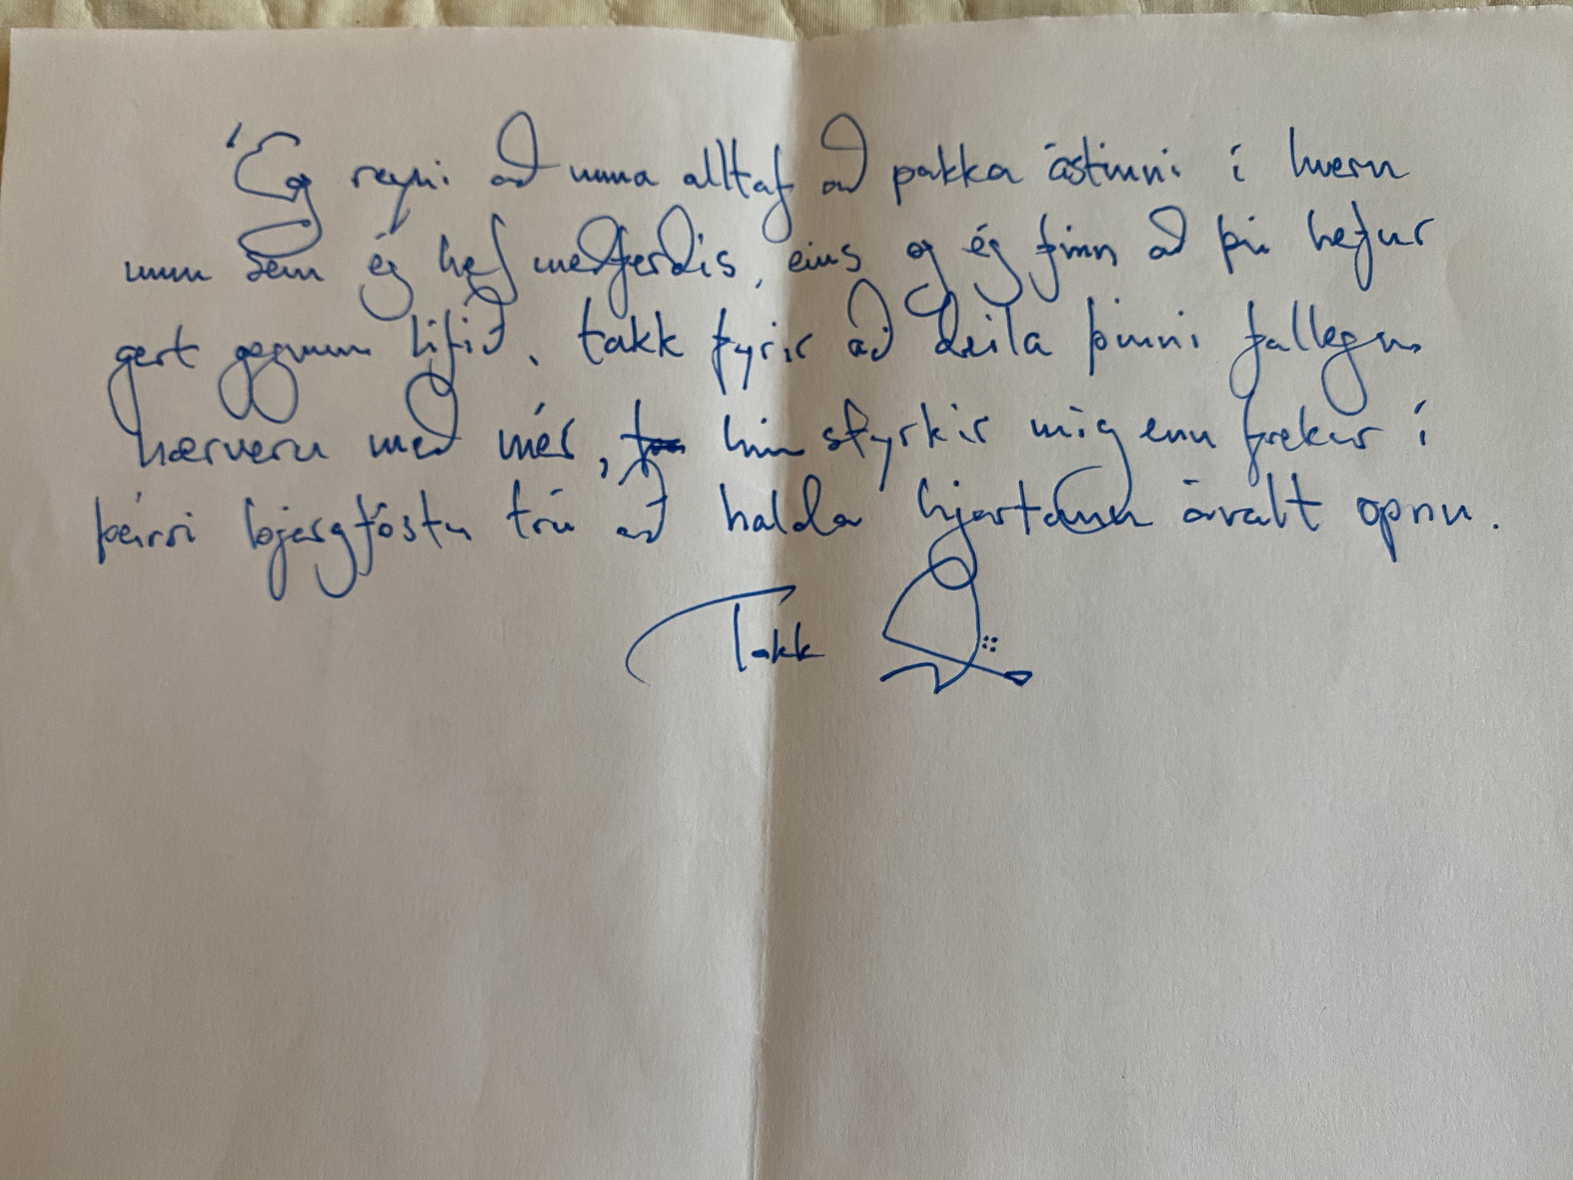 Ég reyni að muna alltaf að pakka ástinni í hvern
mun sem ég hef meðferðis, eins og ég finn að þú hefur
gert gegnum lífið, takk fyrir að deila þinni fallegu
nærveru með mér, hún styrkir mig enn frekar í
þeirri bjargföstu trú að halda hjartanu ávalt opnu.
Takk